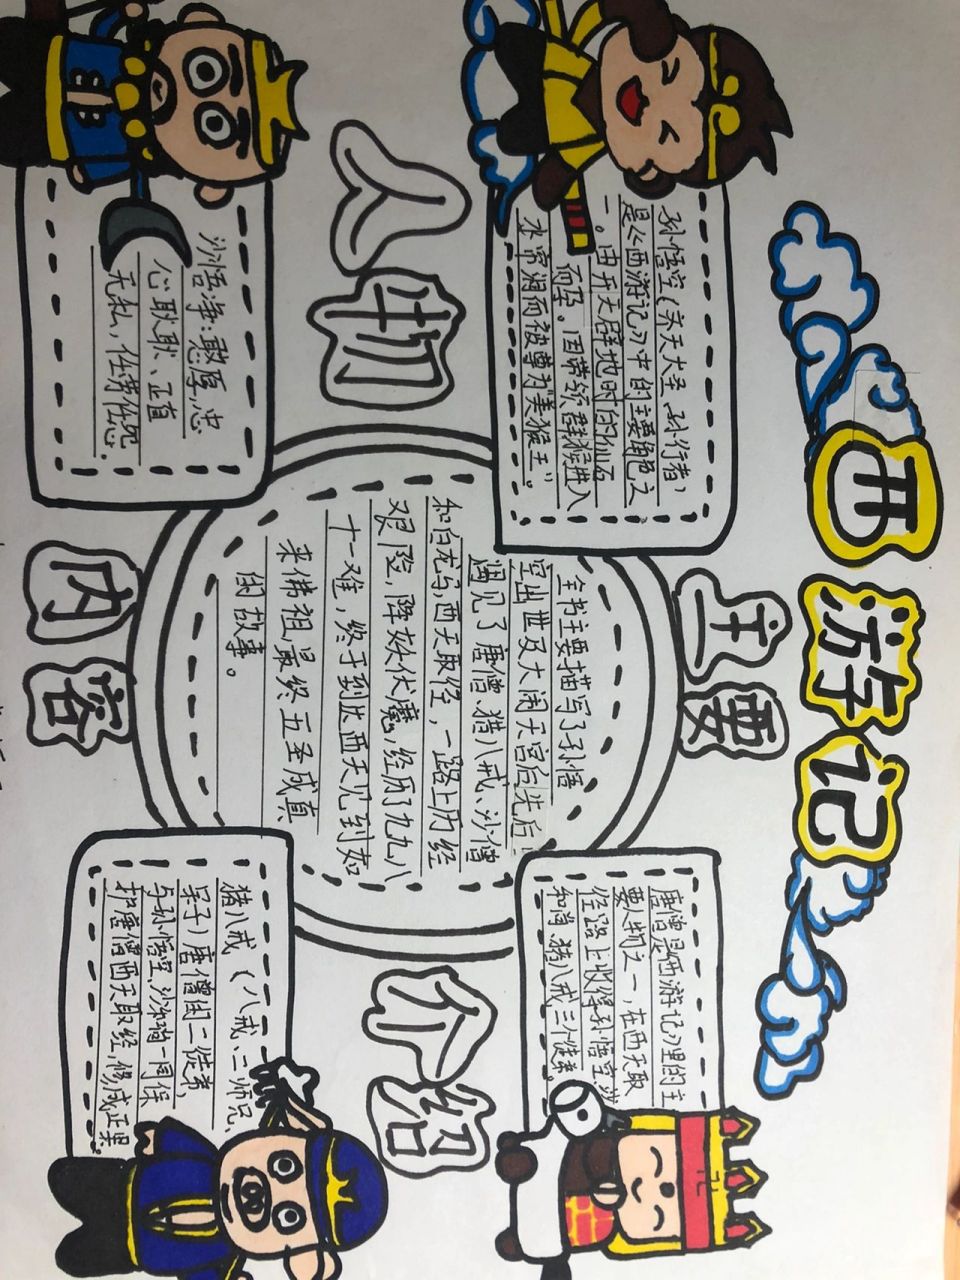 西游记
人物
介绍
主要
内容
孙悟空(齐天大圣、孙行者)
是《西游记》中的主要角色之
一。由开天辟地时的仙石
而孕。因带领群猴进入
水帘洞而被尊为“美猴王”。
唐僧是《西游记》里的主
要人物之一,在西天取
经路上收得孙悟空、沙
和尚、猪八戒三个徒弟。
全书主要描写了孙悟
空出世及大闹天宫后先后
遇见了唐僧、猪八戒、沙僧
和白龙马,西天取经,一路上历经
艰险,降妖伏魔,经历了九九八
十一难,终于到达西天见到如
来佛祖,最终五圣成真
的故事。
沙悟净:憨厚,忠
心耿耿、正直
无私、任劳任怨。
猪八戒(八戒、二师兄、
呆子)唐僧的二徒弟,
与孙悟空、沙和尚一同保
护唐僧西天取经,修成正果